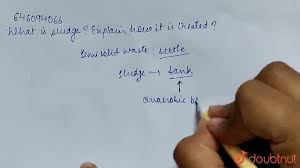 646094066
What is sludge? Explain how it is treated?
Semisolid waste: settle
sludge → tank
↑
anaerobic b
doubtnut